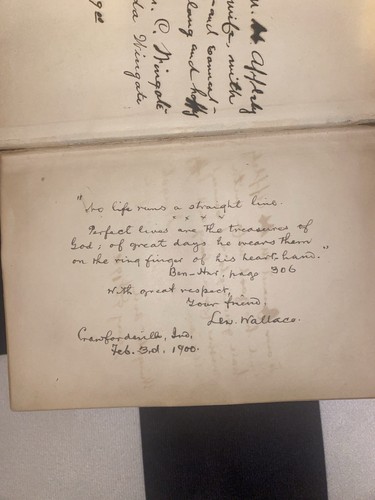 "No life runs a straight line.
x x x x
Perfect lives are the treasures of
God; of great days he wears them
on the ring finger of his heart-hand."
Ben-Hur, page 306
With great respect,
Your friend
Lew. Wallace.
Crawfordsville, Ind,
Feb. 3rd. 1900.
Apply
wife, with
and
long and happy
C. Wingate
Wingate